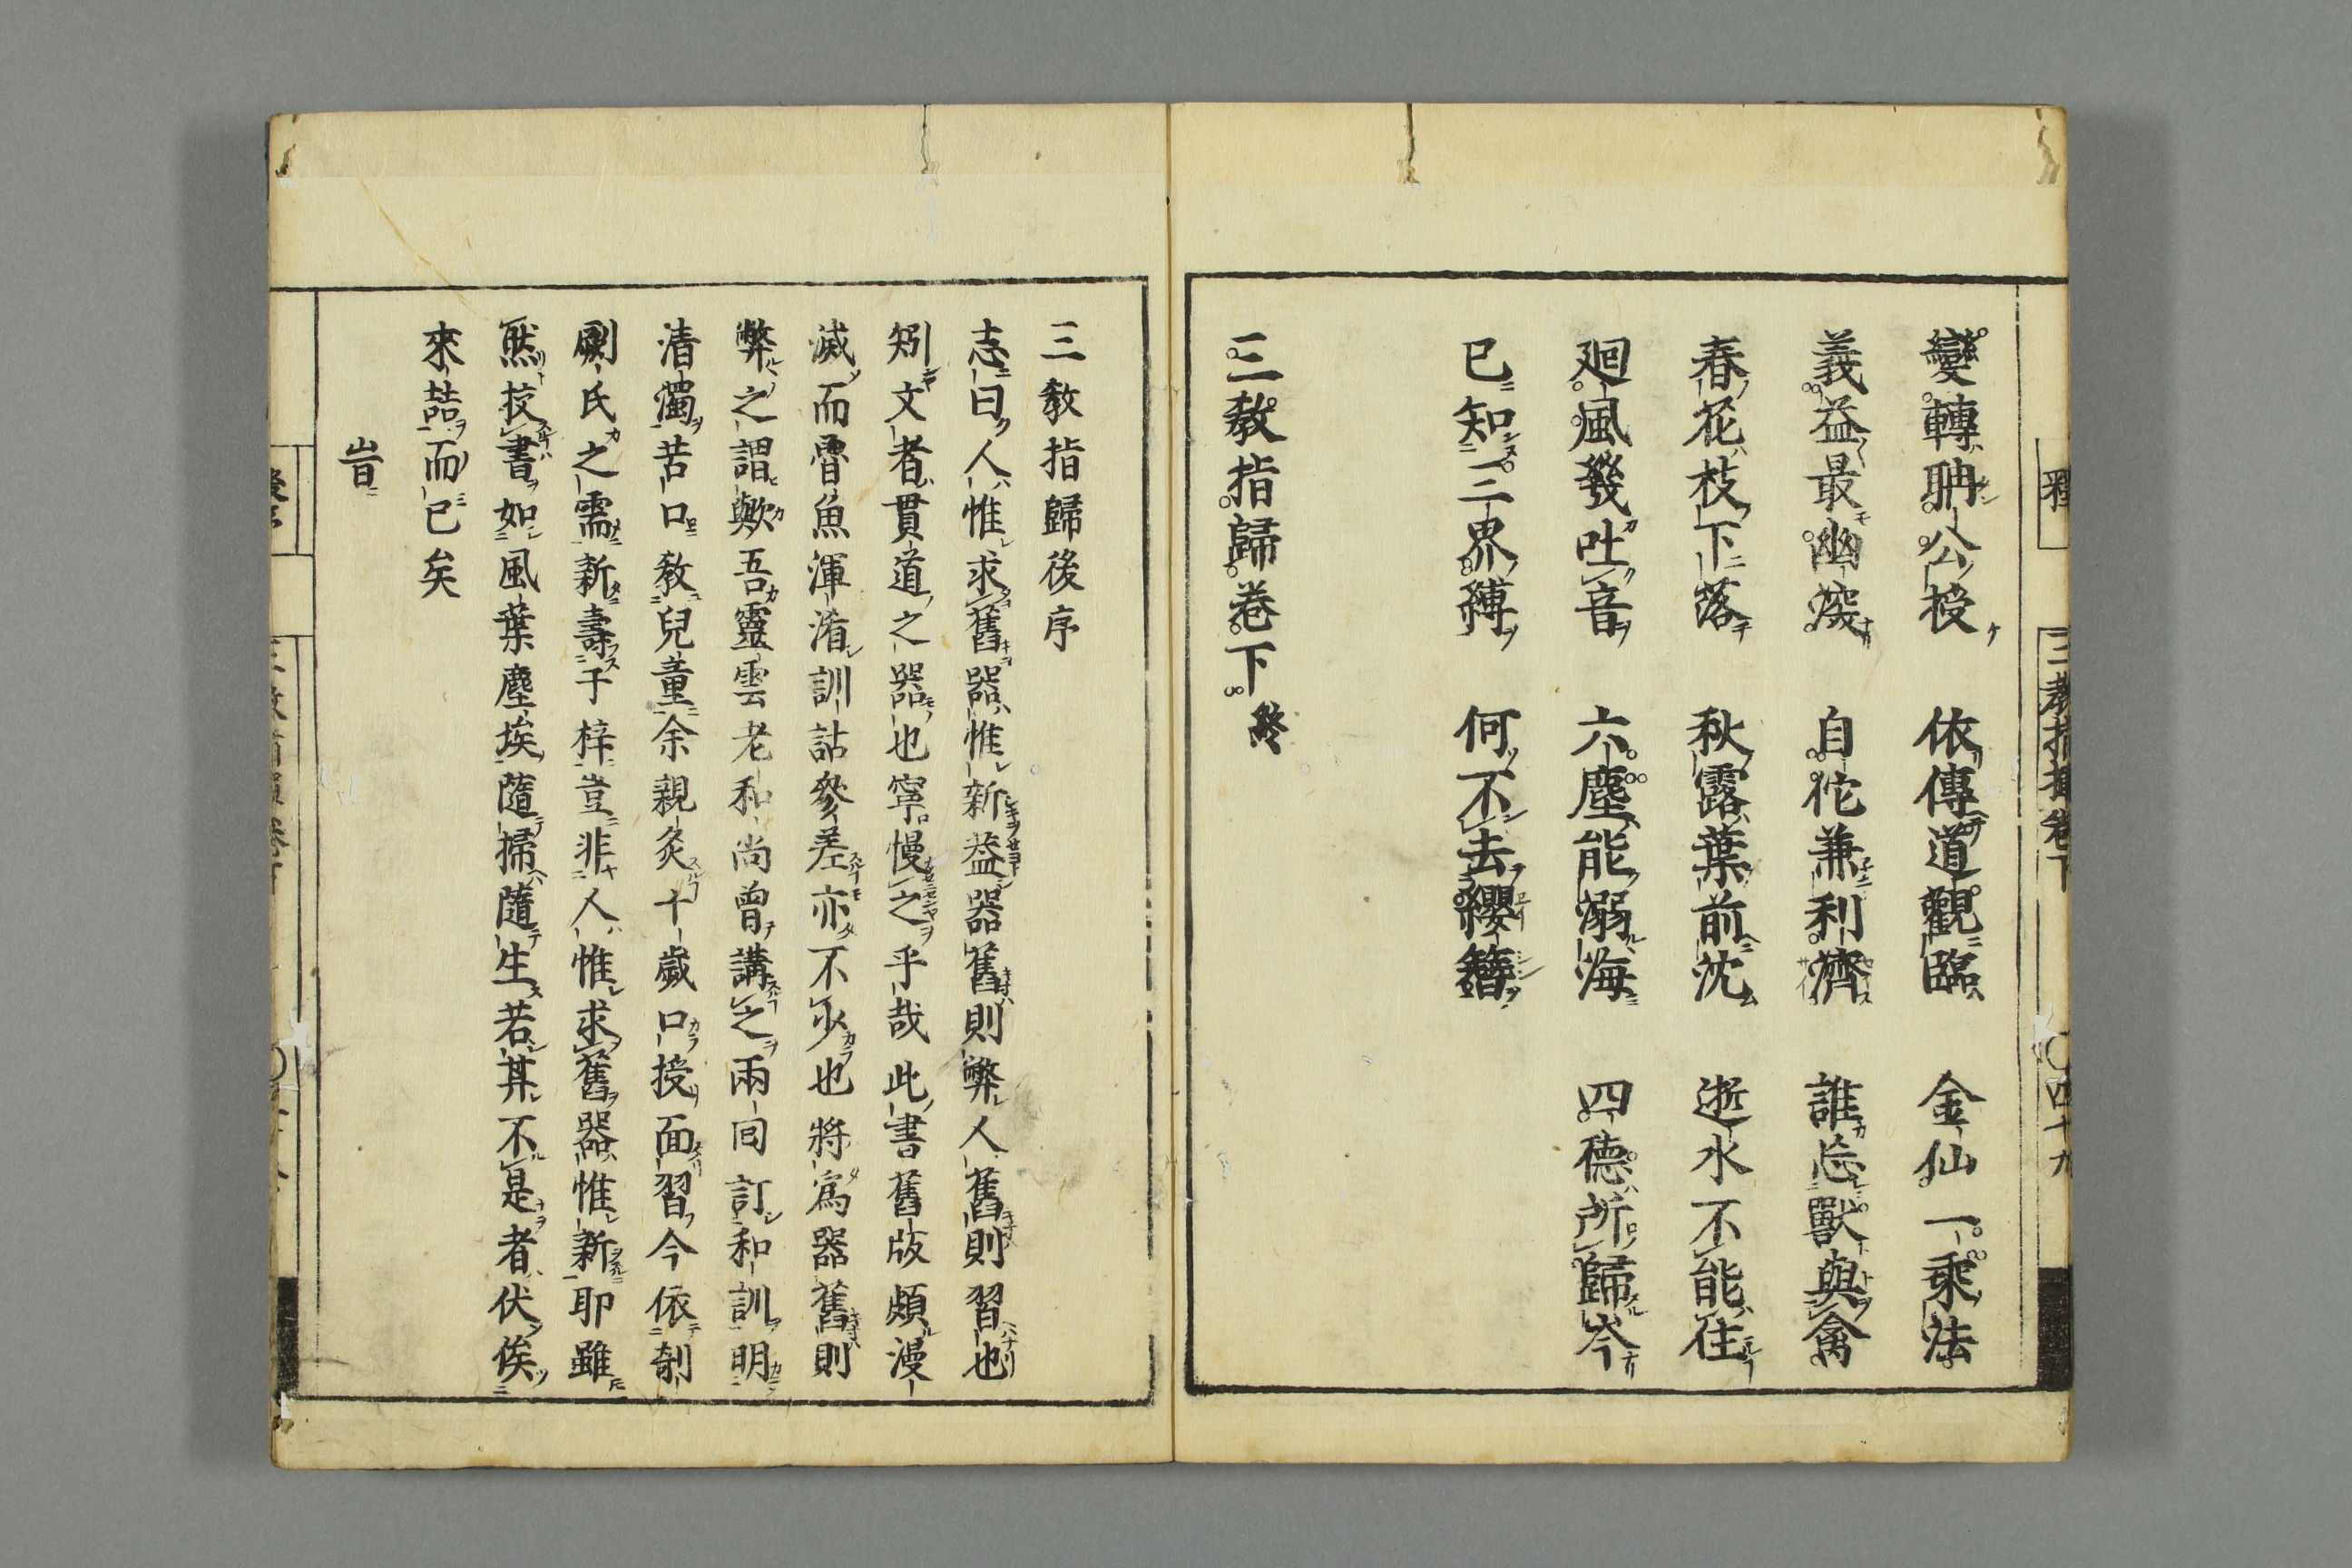 變轉聃公授 依傳道觀臨 金仙一乘法
義益最幽深 自佗兼利濟 誰忘獸與禽
春花枝下落 秋露葉前沈 逝水不能住
廻風幾吐音 六塵能溺海 四德所歸岑
已知三界縛 何不去纓簪
三教指歸卷下終
三教指歸後序
志曰人惟求舊器惟新蓋器舊則弊人舊則習也
矧文者貫道之器也寧慢之乎哉此書舊版頗漫
滅而魯魚渾淆訓詁參差亦不少也將爲器舊則
弊之謂歟吾靈雲老和尚曾講之兩囘訂和訓明
清濁苦口教兒童余親炙十歲口授面習今依剞
劂氏之需新壽于梓豈非人惟求舊器惟新耶雖
然挍書如風葉塵埃隨掃隨生若其不是者伏俟
來喆而已矣
旹
釋 三教指歸卷下 〇四十九